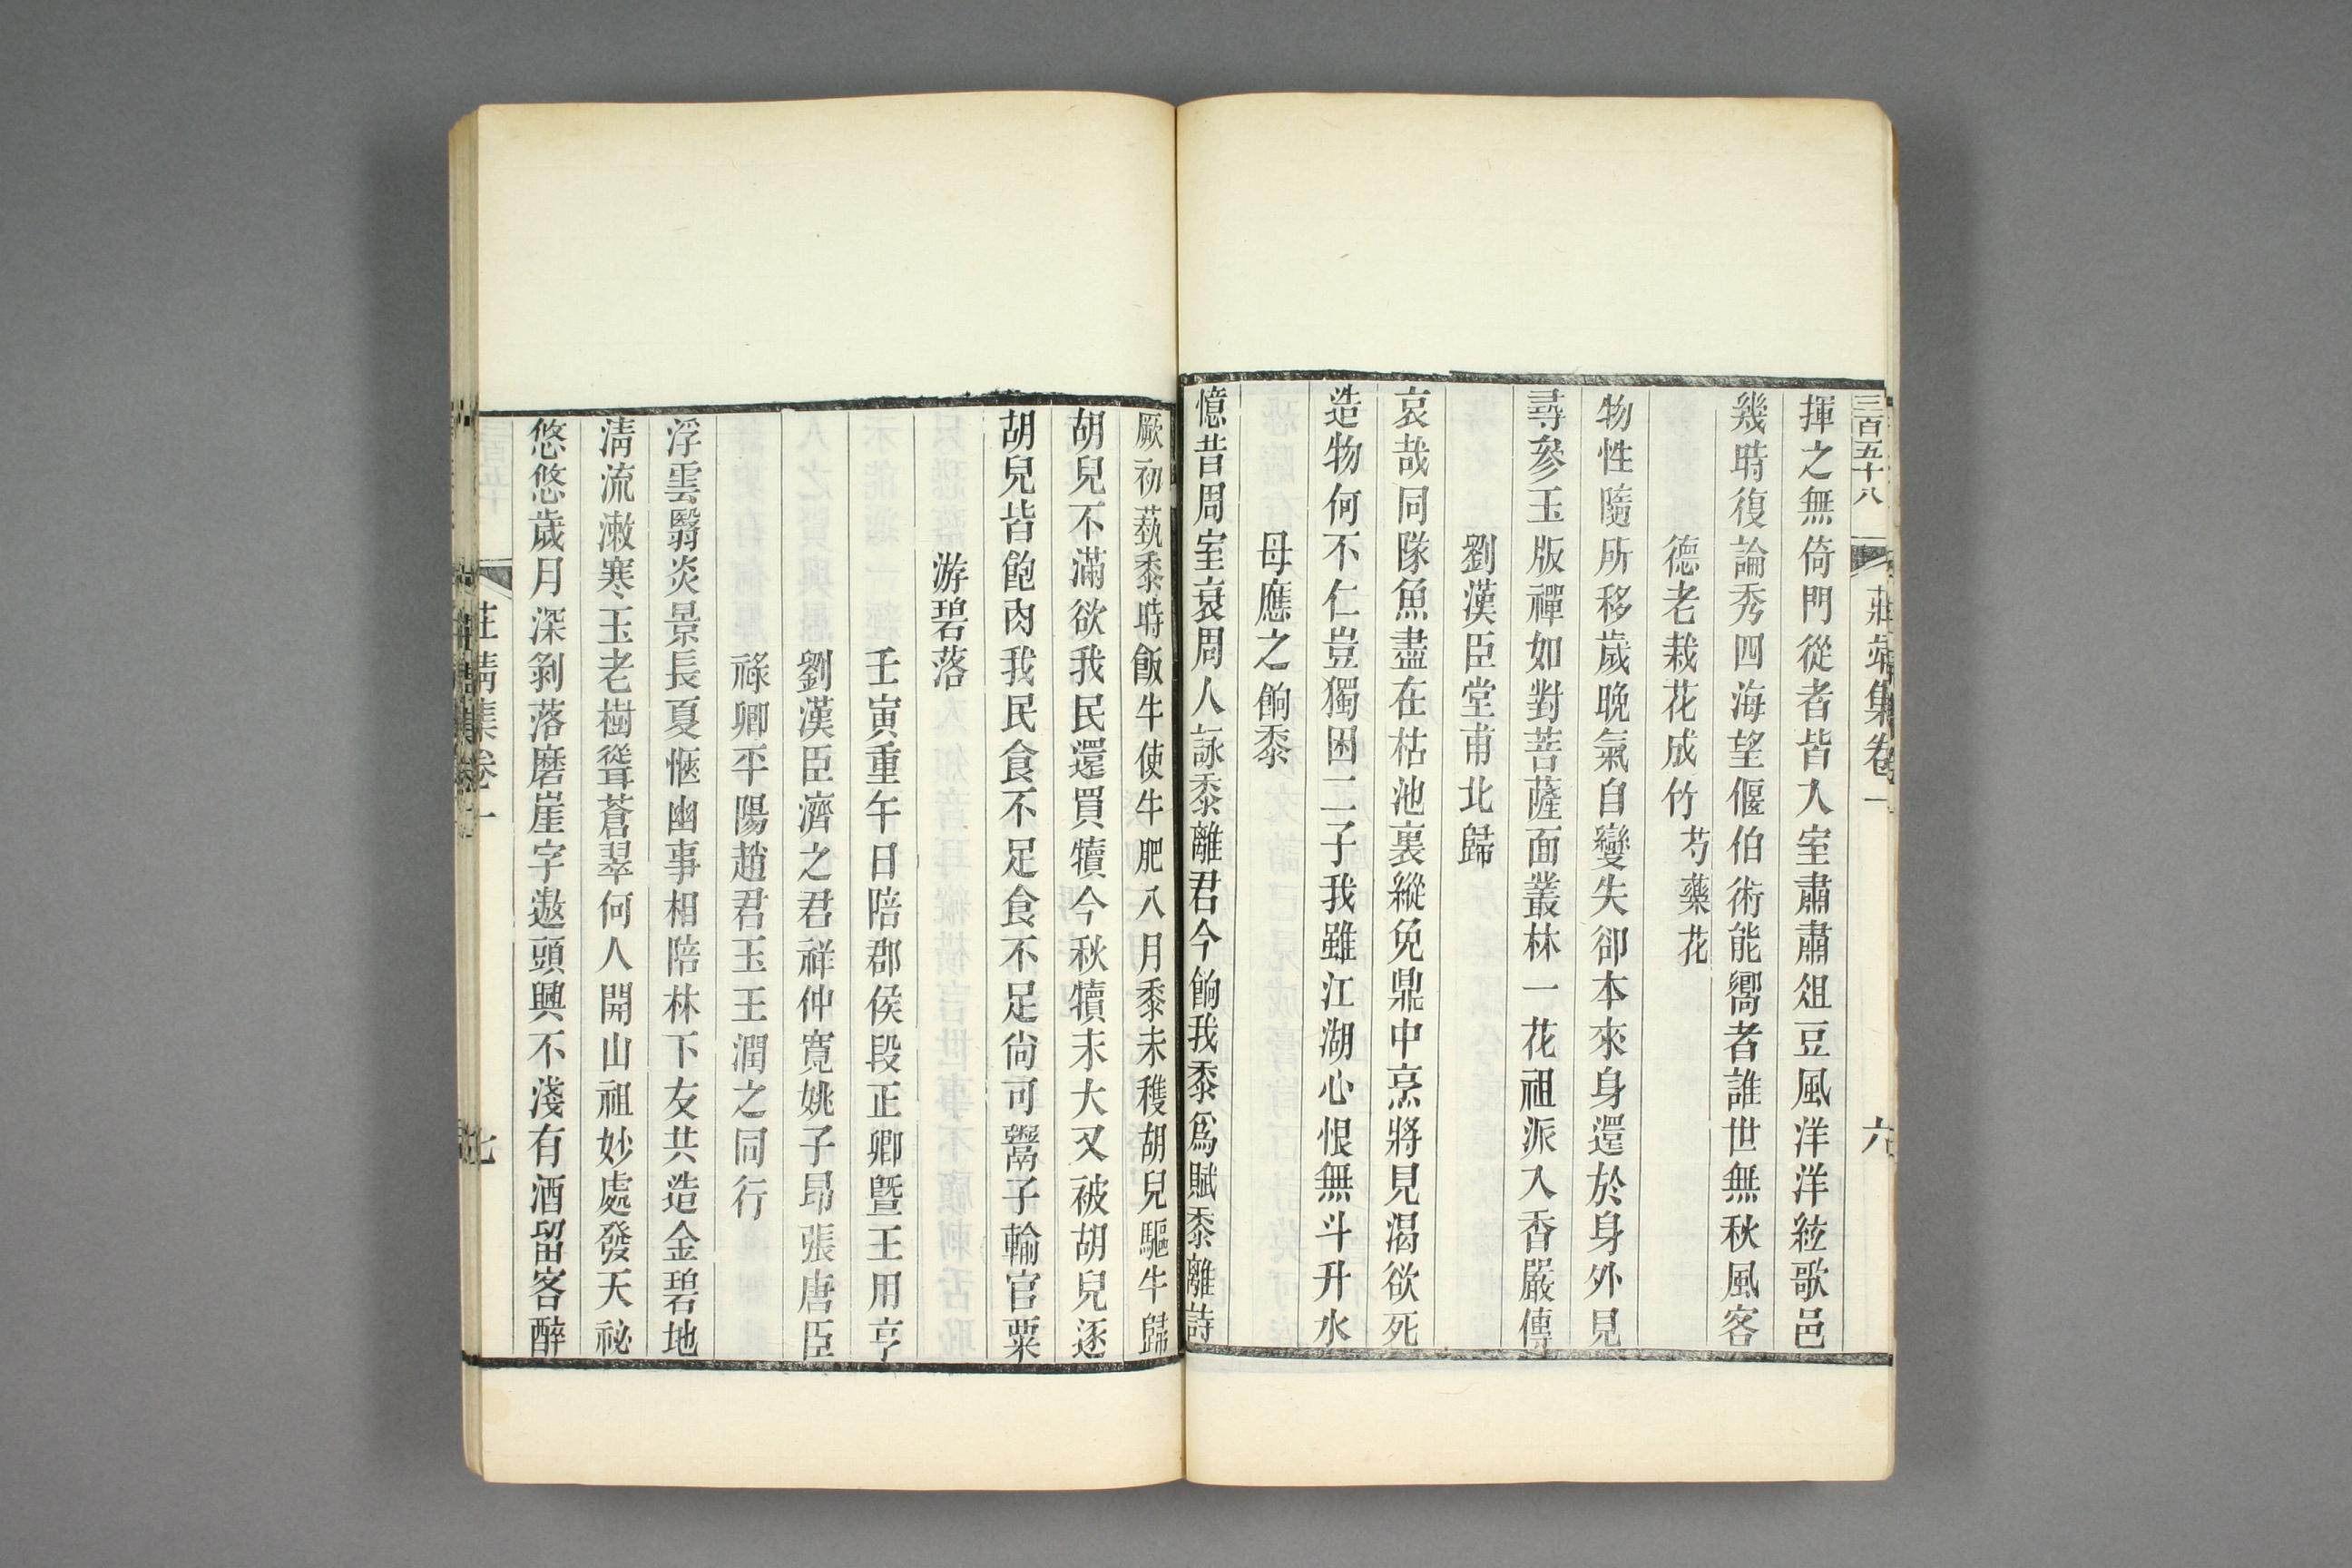 三百五十八 莊靖集卷一 六
揮之無倚門從者皆入室肅肅俎豆風洋洋絃歌邑
幾時復論秀四海望偃伯術能嚮者誰世無秋風客
德老栽花成竹芍藥花
物性隨所移歲晚氣自變失卻本來身還於身外見
尋參玉版禪如對菩薩面叢林一花祖派入香嚴傳
劉漢臣堂甫北歸
哀哉同隊魚盡在枯池裏縱免鼎中烹將見渴欲死
造物何不仁豈獨困二子我雖江湖心恨無斗升水
母應之餉黍
憶昔周室衰周人詠黍離君今餉我黍為賦黍離詩
厥初蓺黍時飯牛使牛肥八月黍未穫胡兒驅牛歸
胡兒不滿欲我民還買犢今秋犢未大又被胡兒逐
胡兒皆飽肉我民食不足食不足尚可鬻子輸官粟
游碧落
壬寅重午日陪郡侯段正卿暨王用亨
劉漢臣濟之君祥仲寬姚子昂張唐臣
祿卿平陽趙君玉王潤之同行
浮雲翳炎景長夏愜幽事相陪林下友共造金碧地
清流漱寒玉老樹聳蒼翠何人開山祖妙處發天祕
悠悠歲月深剝落磨崖字遨頭興不淺有酒留客醉
莊靖集卷一 七